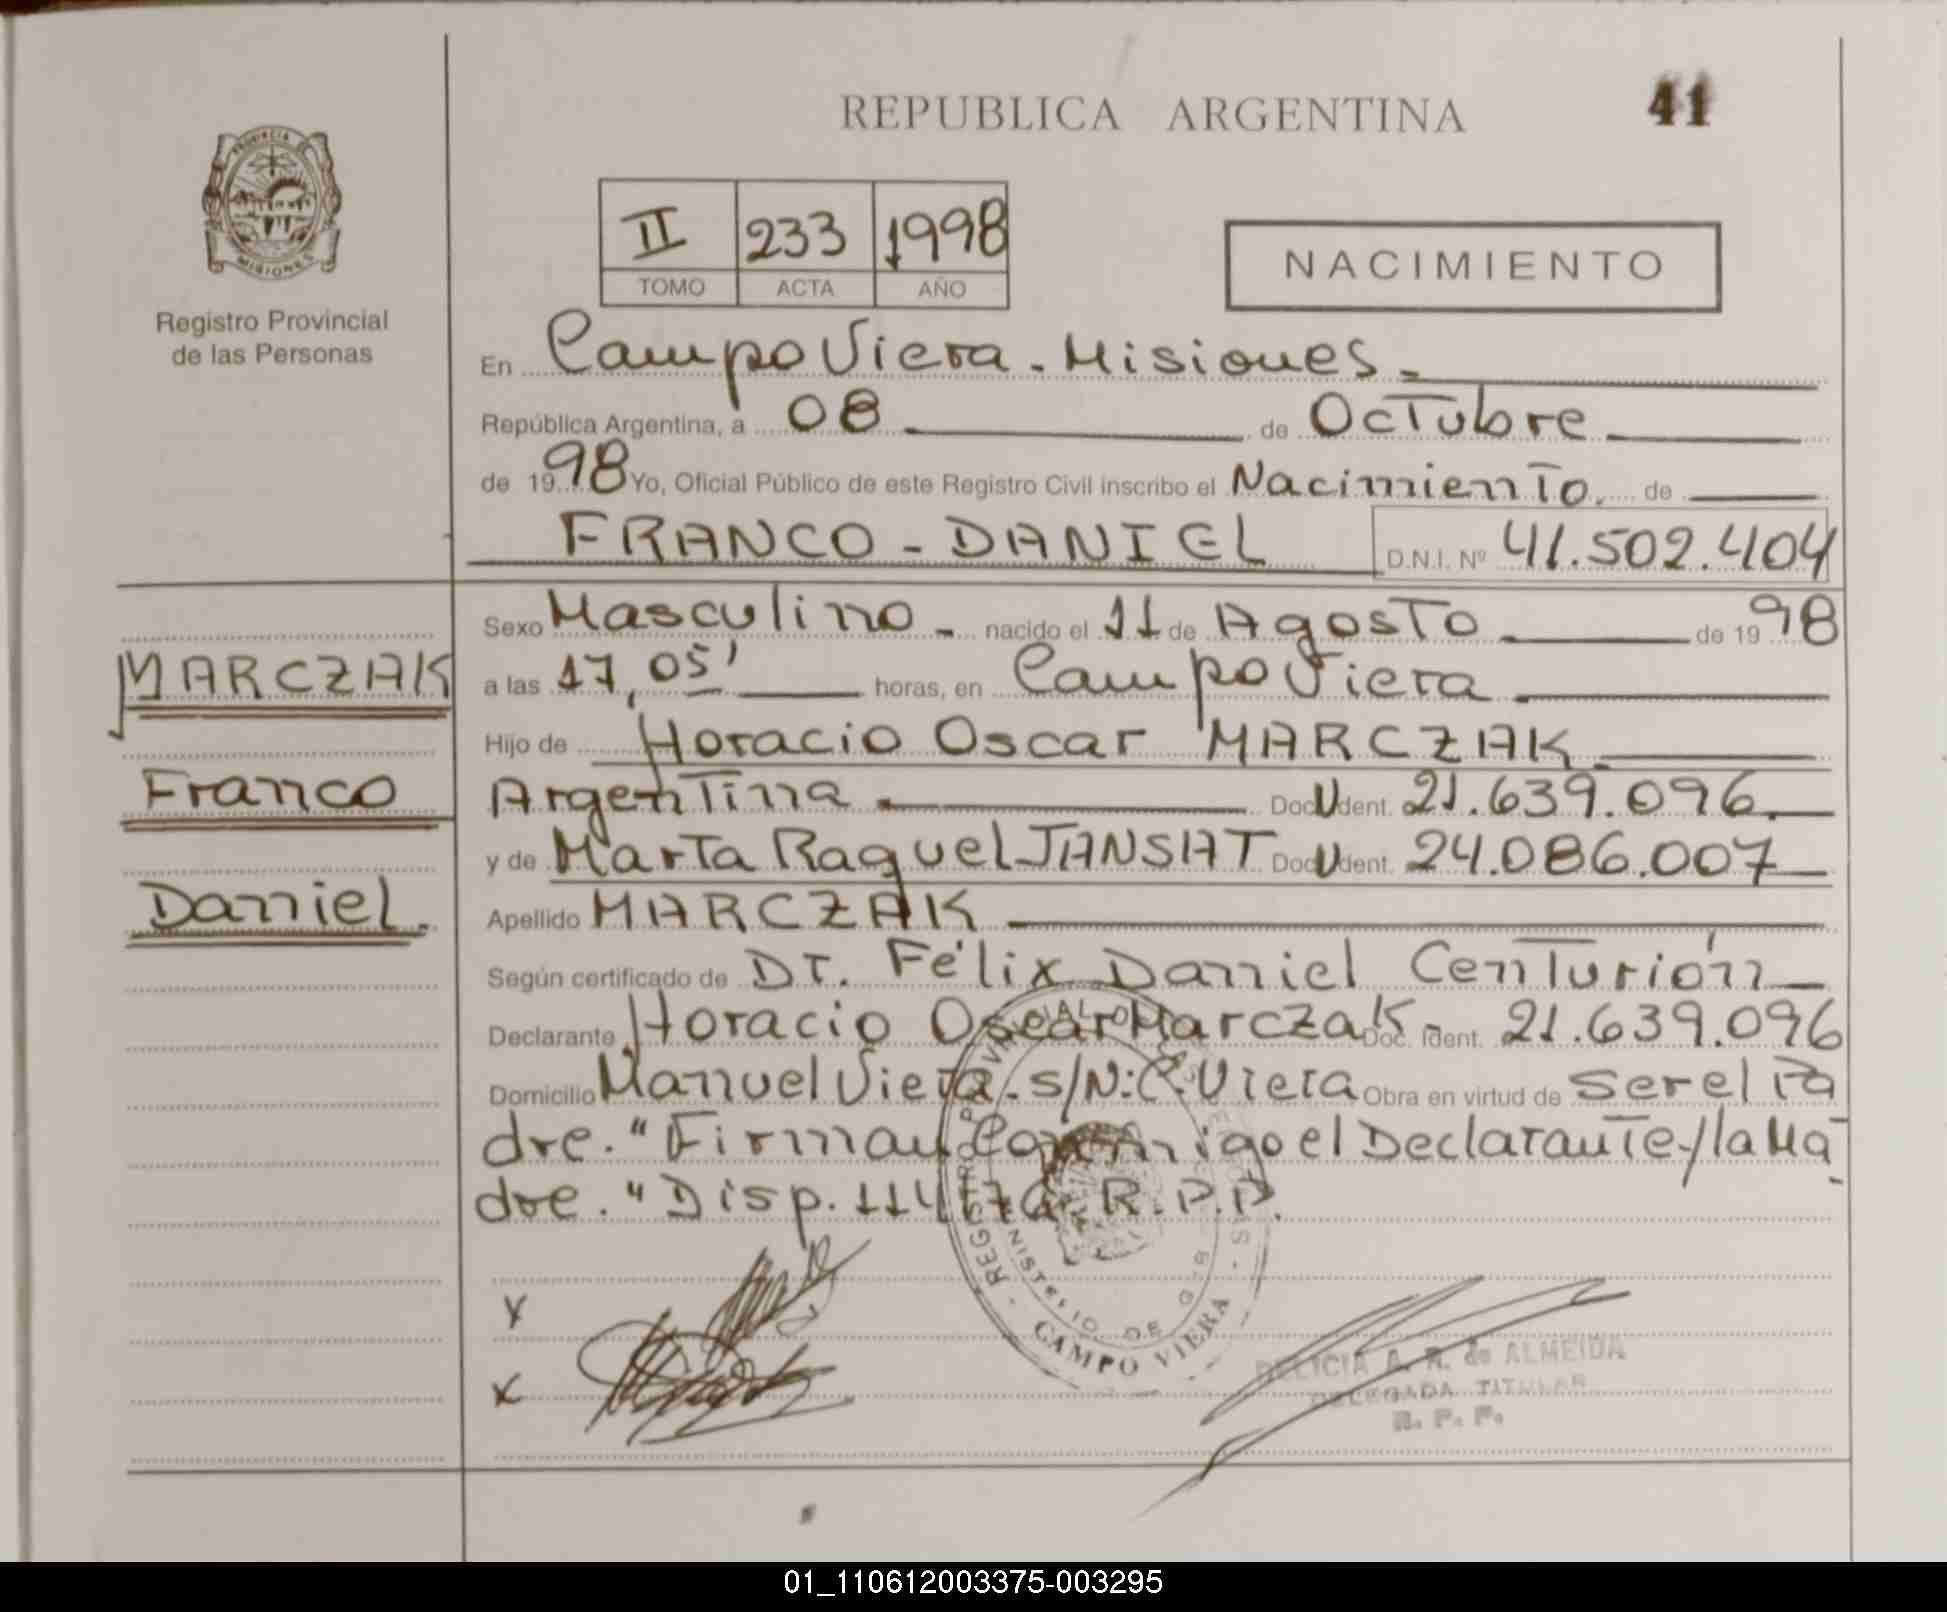 REPUBLICA ARGENTINA
41
PROVINCIA DE
MISIONES
Registro Provincial
de las Personas
II 233 1998
TOMO ACTA AÑO
NACIMIENTO
En Campo Viera - Misiones.
República Argentina, a 08 de Octubre
de 1998 Yo, Oficial Público de este Registro Civil inscribo el Nacimiento. de
FRANCO - DANIEL D.N.I. Nº 41.502.404
MARCZAK
Franco
Daniel.
Sexo Masculino - nacido el 11 de Agosto de 1998
a las 17,05' horas, en Campo Viera
Hijo de Horacio Oscar MARCZAK
Argentina Doc. U Ident. 21.639.096.
y de Marta Raquel JANSAT Doc. U Ident. 24.086.007
Apellido MARCZAK
Según certificado de Dr. Félix Daniel Centurión
Declarante Horacio Oscar Marczak - Doc. Ident. 21.639.096
Domicilio Manuel Viera - s/N: C. Viera Obra en virtud de ser el Pa
dre. "Firman Conmigo el Declarante y la Ma
dre. "Disp. 114/76 R.P.P.
x
x
REGISTRO PROVINCIAL DE LAS PERSONAS
MINISTERIO DE
CAMPO VIERA
DELICIA A. R. de ALMEIDA
DELEGADA TITULAR
R. P. P.
01_110612003375-003295